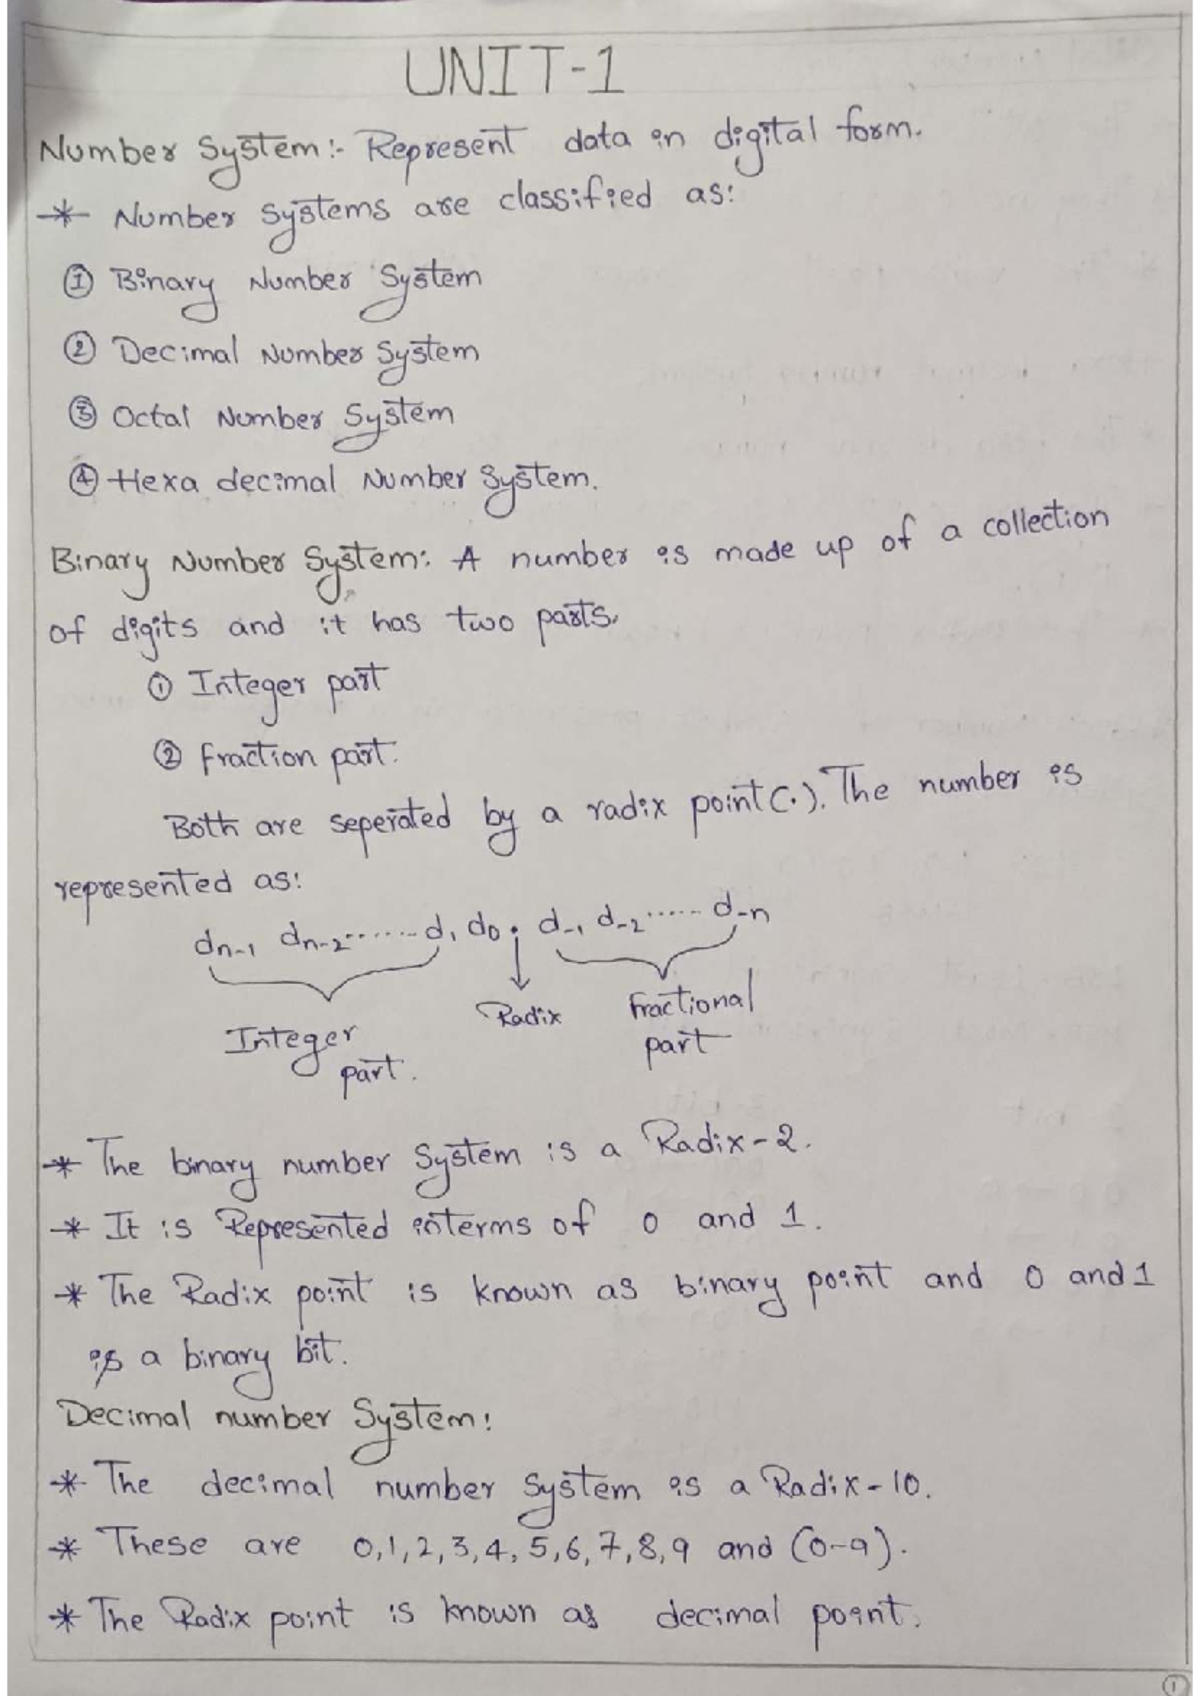 UNIT-1
Number System:- Represent data in digital form.
* Number Systems are classified as:
① Binary Number System
② Decimal Number System
③ Octal Number System
④ Hexa decimal Number System.
Binary Number System: A number is made up of a collection
of digits and it has two parts.
① Integer part
② fraction part.
Both are seperated by a radix point(.). The number is
represented as:
dn-1 dn-2 ...... d1 d0 . d-1 d-2 ...... d-n
Integer part. Radix fractional part
* The binary number System is a Radix-2.
* It is Represented interms of 0 and 1.
* The Radix point is known as binary point and 0 and 1
is a binary bit.
Decimal number System:
* The decimal number System is a Radix-10.
* These are 0,1,2,3,4,5,6,7,8,9 and (0-9).
* The Radix point is known as decimal point.
1